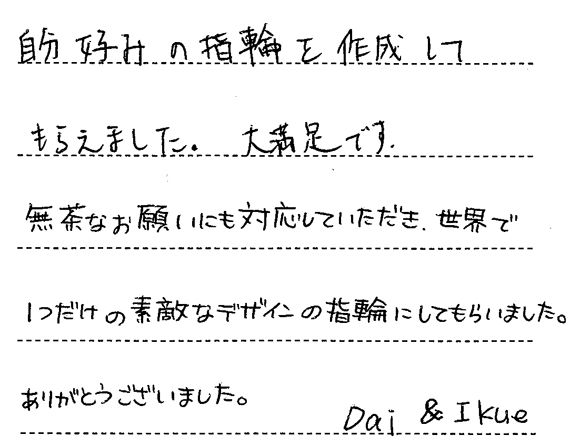 自分好みの指輪を作成して
もらえました。 大満足です.
無茶なお願いにも対応していただき、世界で
1つだけの素敵なデザインの指輪にしてもらいました。
ありがとうございました。
Dai & Ikue